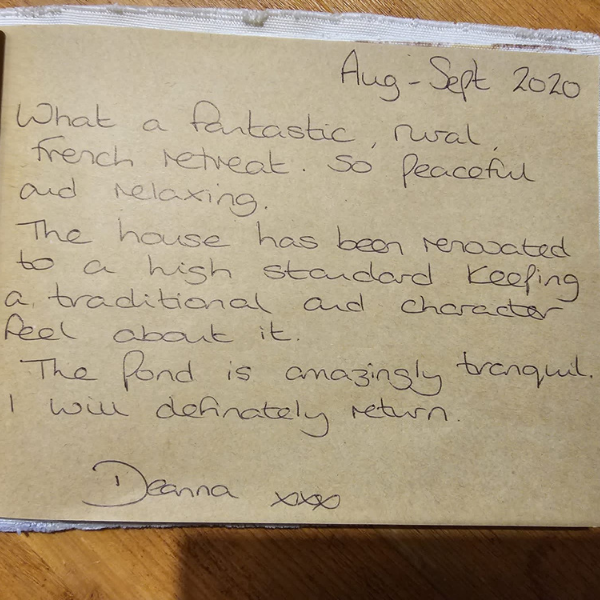 Aug - Sept 2020
What a fantastic, rural,
french retreat. So peaceful
and relaxing.
The house has been renovated
to a high standard keeping
a traditional and character
feel about it.
The pond is amazingly tranquil.
I will definately return.
Deanna xxx